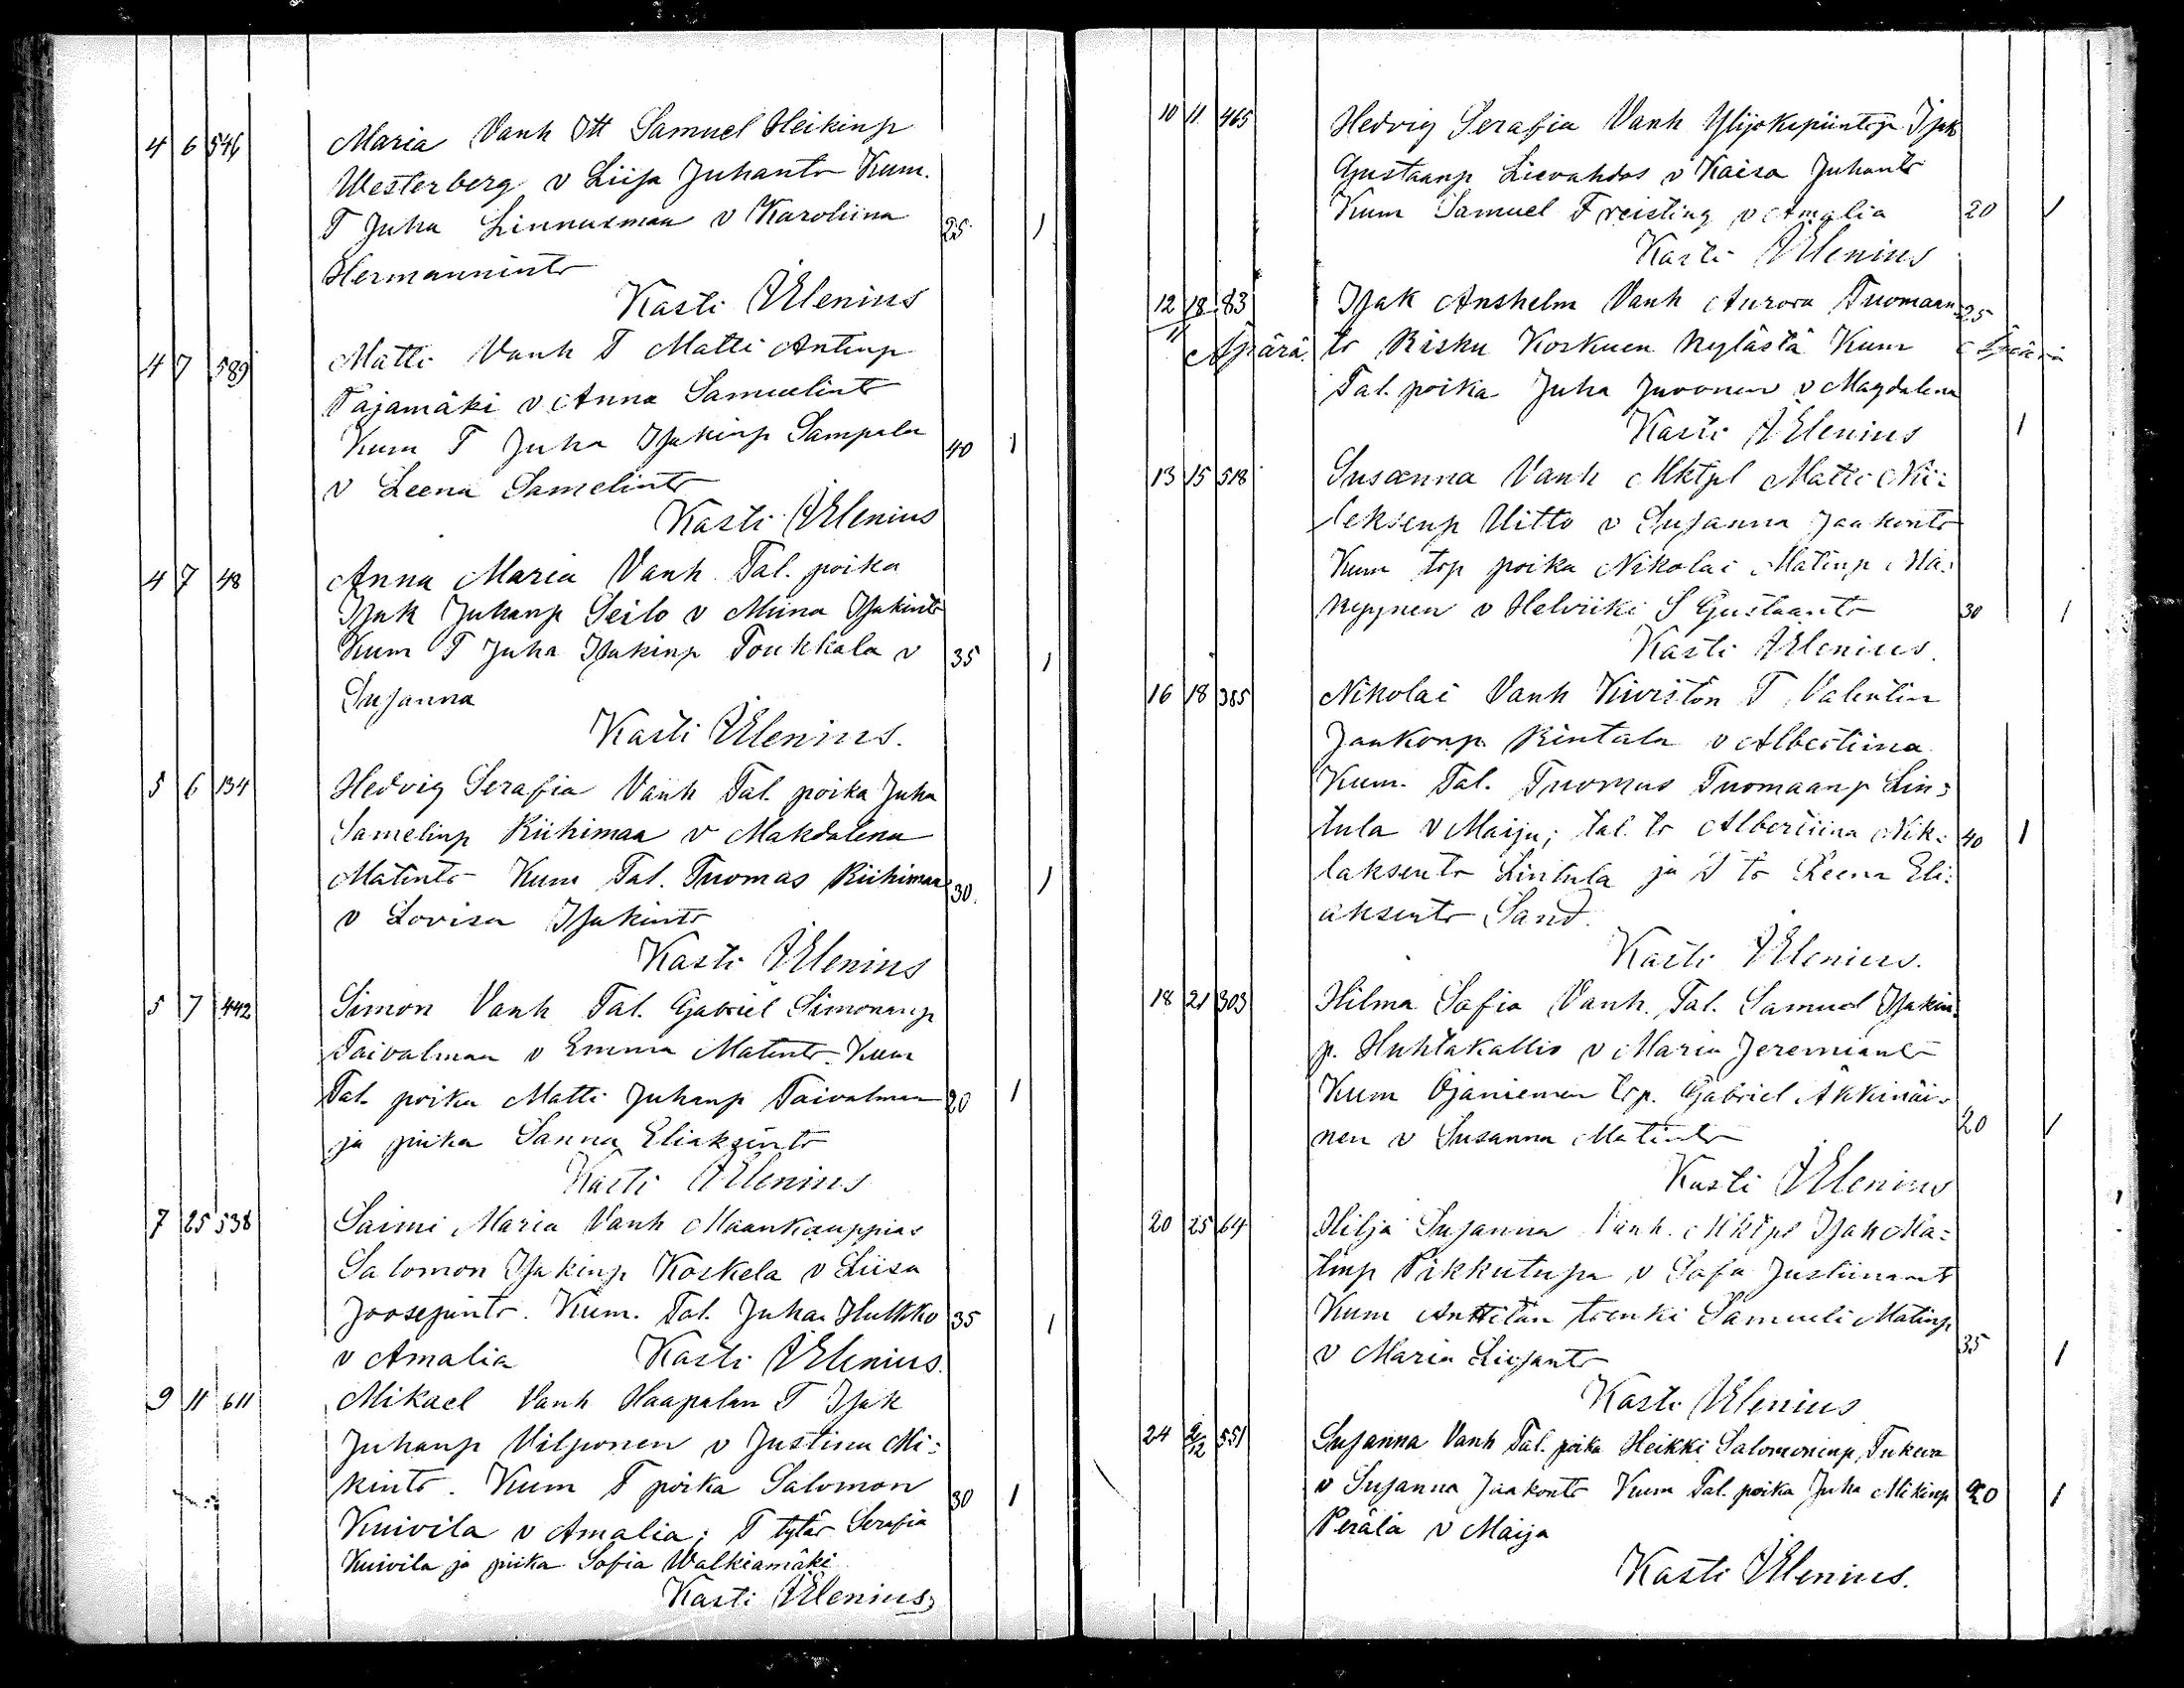 4 6 546 Maria Vanh Itt Samuel Heikinp
Westerberg v Liisa Juhantr Kum.
T Juha Linnusmaa v Karoliina 25 1
Hermannintr
Kasti Elenius
4 7 589 Matti Vanh T Matti Antinp
Pajamäki v Anna Samuelintr
Kum T Juha Isakinp Sampala 40 1
v Leena Samelintr
Kasti Elenius
4 7 48 Anna Maria Vanh Tal. poika
Isak Juhanp Seilo v Miina Isakintr
Kum T Juha Isakinp Toukkala v 35 1
Susanna
Kasti Elenius.
5 6 134 Hedvig Serafia Vanh Tal. poika Juha
Samelinp Riihimaa v Makdalena
Matintr Kum Tal. Tuomas Riihimaa 30. 1
v Lovisa Isakintr
Kasti Elenius
5 7 442 Simon Vanh Tal. Gabriel Simonanp
Taivalmaa v Emma Matintr. Kum
Tal. poika Matti Juhanp Taivalmaa 20 1
ja piika Sanna Eliaksintr
Kasti Elenius
7 25 538 Saimi Maria Vanh Maankauppias
Salomon Isakinp Koskela v Liisa
Joosepintr. Kum. Tal. Juha Hulkko 35 1
v Amalia Kasti Elenius.
9 11 611 Mikael Vanh Haapalan T Isak
Juhanp Vilponen v Justina Mi=
kintr. Kum T poika Salomon 30 1
Knivila v Amalia; T tytär Serafia
Knivila ja piika Sofia Walkiamäki
Kasti Elenius
10 11 465 Hedvig Serafia Vanh Isak
Gustaanp Lievahdas v Kaisa Juhantr
Kum Samuel Freisting v Amalia 20 1
Kasti Elenius
12 18/11 83 Isak Anshelm Vanh Aurora Tuomaan= 25
Äpärä. tr Risku Korkuen kylästä Kum Äpärä
Tal. poika Juha Juvonen v Magdalena
Kasti Elenius 1
13 15 518 Susanna Vanh Mktpl Matti Nii=
leksenp Uitto v Susanna Jaakontr
Kum trp poika Nikolai Matinp Mä=
kynen v Helviiki S Gustaantr 30 1
Kasti Elenius.
16 18 385 Nikolai Vanh Kiviston T Valentin
Jaakonp Rintala v Albertiina
Kum. Tal. Tuomas Tuomaanp Lin=
tula v Maiju; tal. tr Albertiina Nik= 40 1
laksentr Lintula ja T tr Leena Eli=
aksentr Sand.
Kasti Elenius.
18 21 303 Hilma Sofia Vanh. Tal. Samuel Isakin=
p. Huhtakallio v Maria Jeremiantr
Kum Ojaniemen trp. Gabriel Äkkinäi=
nen v Susanna Matintr 20 1
Kasti Elenius
20 25 64 Hilja Susanna Vanh. Mktps Isak Ma=
tinp Pikkutupa v Sofia Justiinantr
Kum Anttilan trenki Samueli Matinp
v Maria Liisantr 35 1
Kasti Elenius
24 2/12 551 Susanna Vanh Tal. poika Heikki Salomoninp, Tukeva
v Susanna Jaakontr Kum Tal. poika Juha Mikinp 20 1
Perälä v Maija
Kasti Elenius.